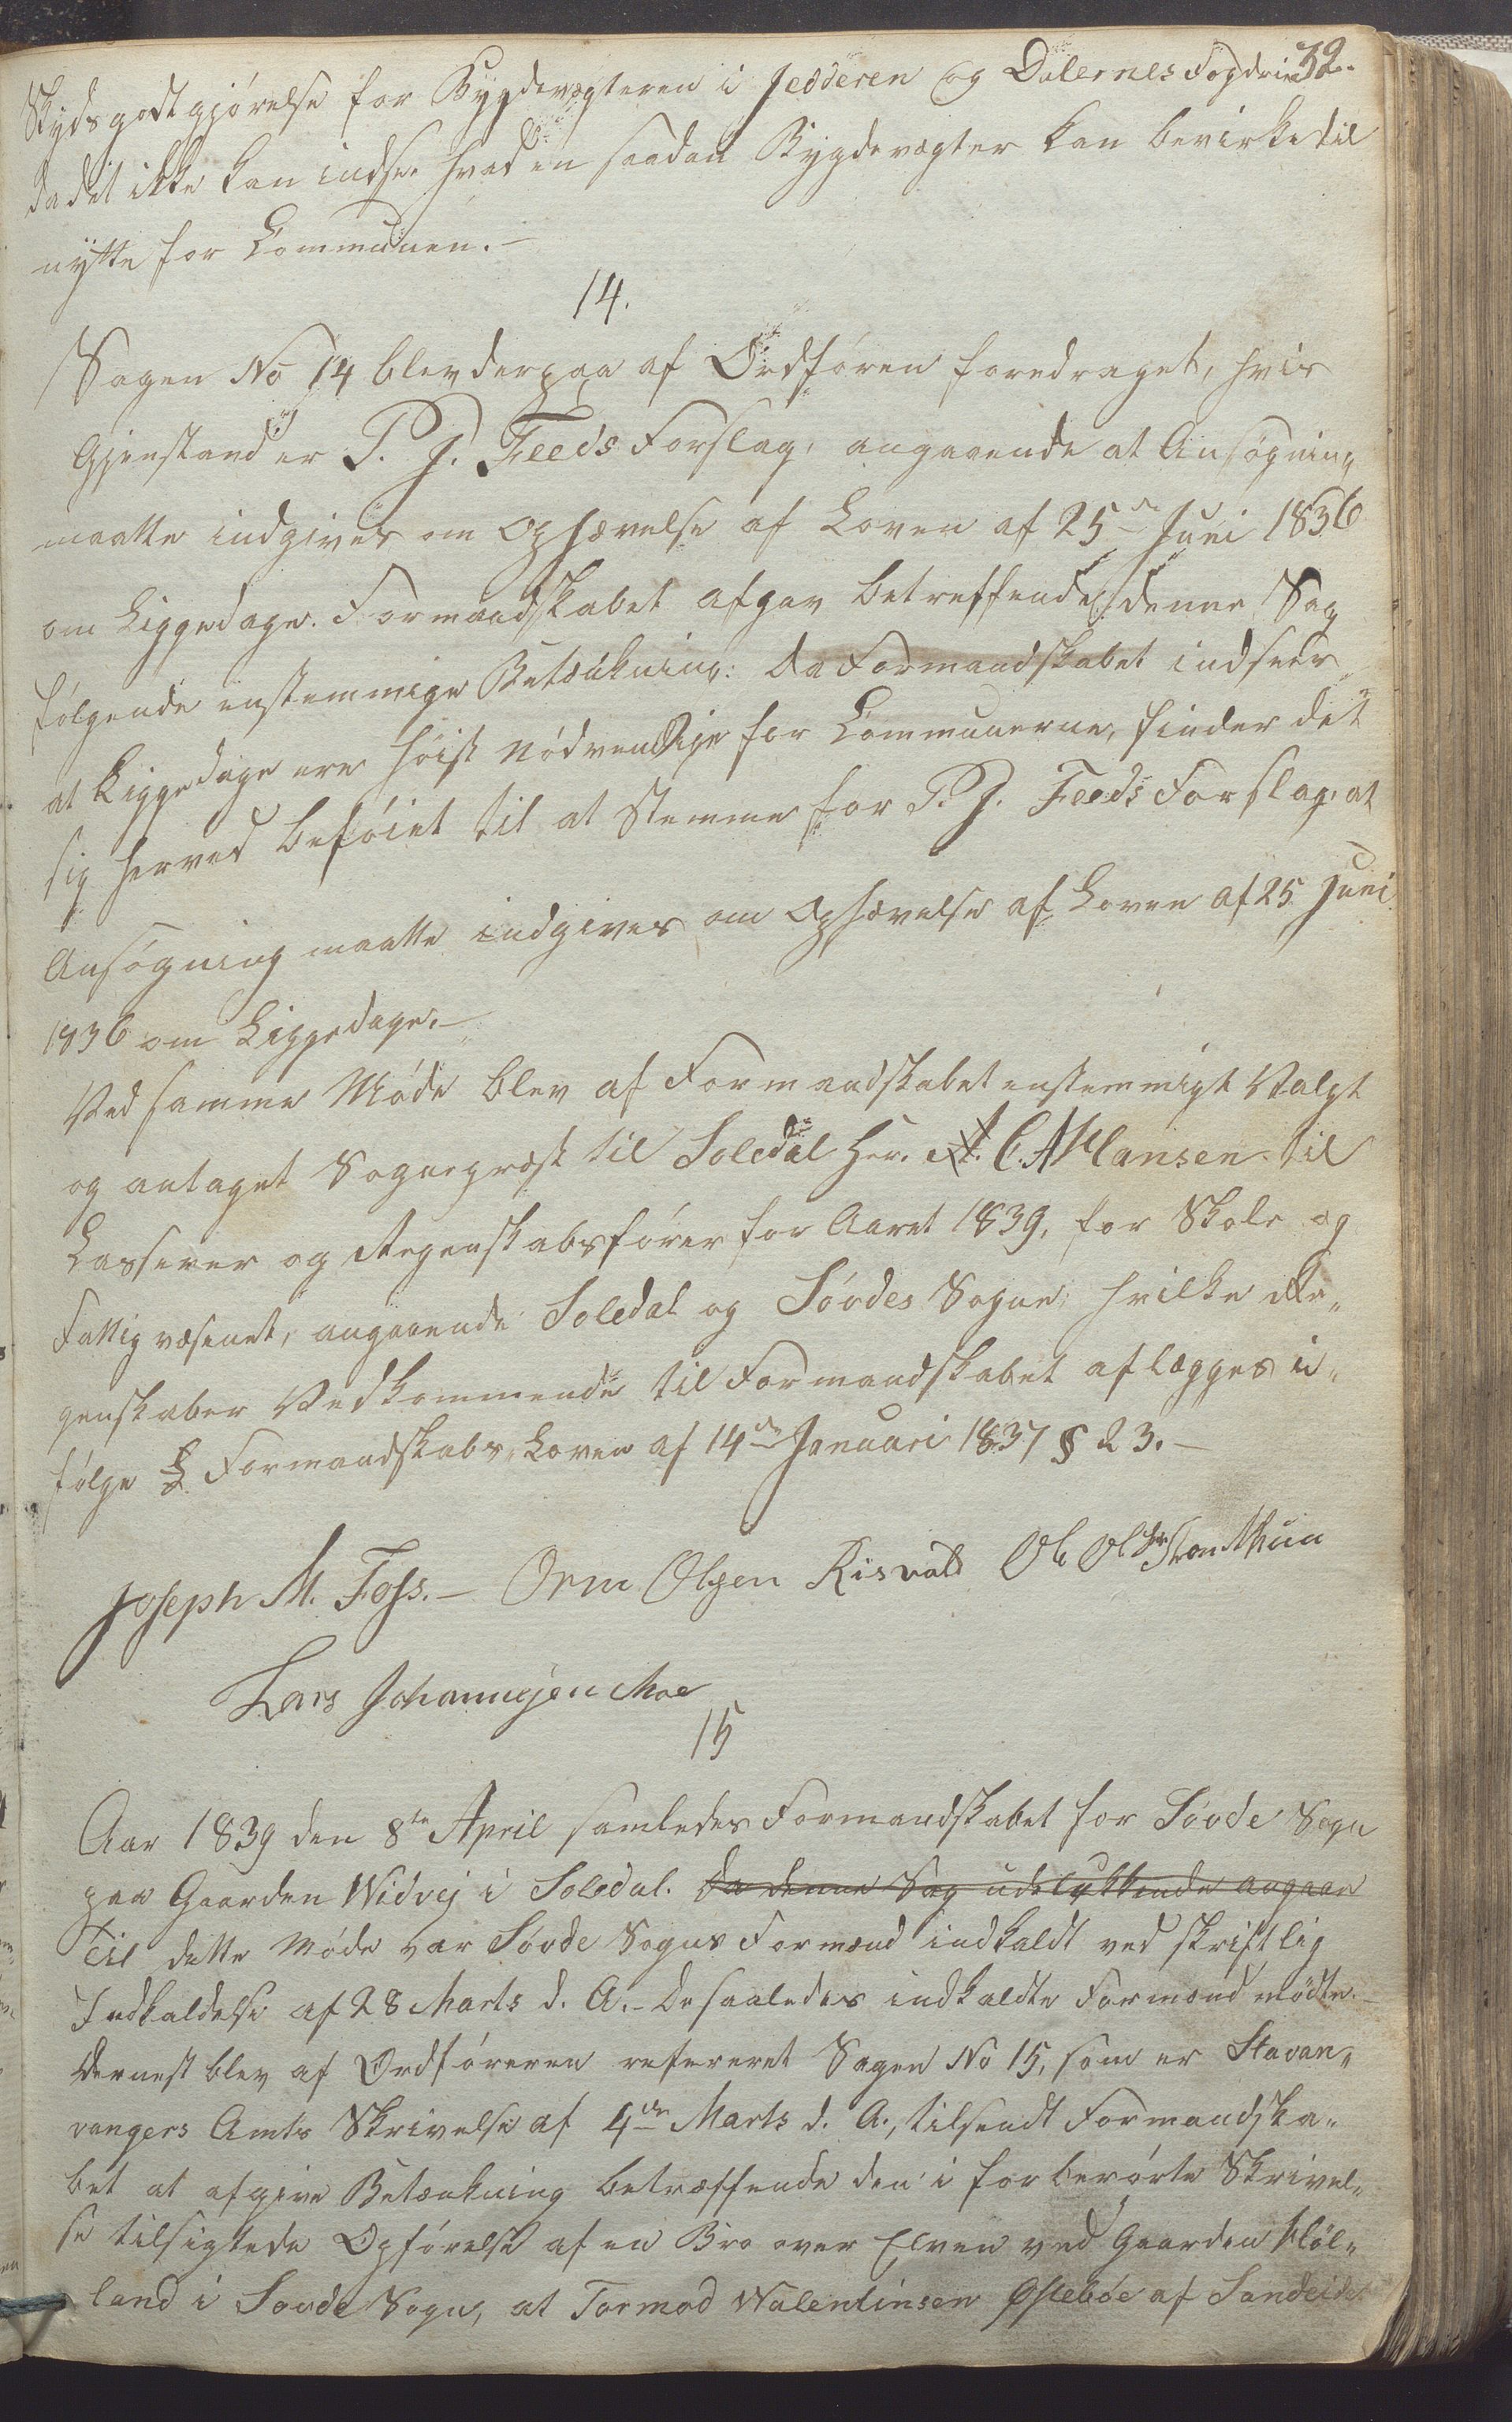 32.
Skydsgodtgjörelse for Bygdevægteren i Jedderen og Dalernes Fogderie
da det ikke kan indsee hvad en saadan Bygdevægter kan bevirke til
nytte for Communen.—
14.
Sagen No 14 blev derpaa af Ordføren foredraget, hvis
Gjenstand er P. J. Feeds Forslag, angaaende at Ansøgning
maatte indgives om Ophævelse af Loven af 25de Juni 1836
om Liggedage. Formandskabet afgav betreffende denne Sag
følgende enstemmige Betænkning: Da Formandskabet indseer
at Liggedage ere höist nödvendige for Communerne, finder det
sig herved beföiet til at stemme for P. J. Feeds Forslag, at
Ansögning maatte indgives om Ophævelse af Loven af 25 Juni
1836 om Liggedage.—
Ved samme Möde blev af Formandskabet enstemmigt Valgt
og antaget Sognepræst til Soledal Hr. A. C. A. Hansen til
Casserer og Regenskabsförer for Aaret 1839, for Skole og
Fattigvæsenet, angaaende Soledal og Sövdes Sogne, hvilke Re„
genskaber Vedkommende til Formandskabet aflægges i„
fölge Formandskabs„Loven af 14de Januari 1837 § 23.—
Joseph M. Foss.— Orm Olsen Risvold Ole Ols
Lars Johannesen Moe
15
Aar 1839 den 8te April samledes Formandskabet for Sövde Sogn
paa Gaarden Widvej i Soledal. Da denne Sag udelukkende angaar
Til dette Möde var Sövde Sogns Formænd indkaldt ved skriftlig
Indkaldelse af 28 Marts d. A.- De saaledes indkaldte Formænd mödte.—
Dernest blev af Ordföreren refereret Sagen No 15, som er Stavan„
vangers Amts Skrivelse af 4de Marts d. A., tilsendt Formandska„
bet at afgive Betænkning betræffende den i forberörte Skrivel„
se tilsigtede Opförelse af en Bro over Elven ved Gaarden Höl„
land i Sovde Sogn, at Tormod Walentinsen Østeböe af Sandeidet